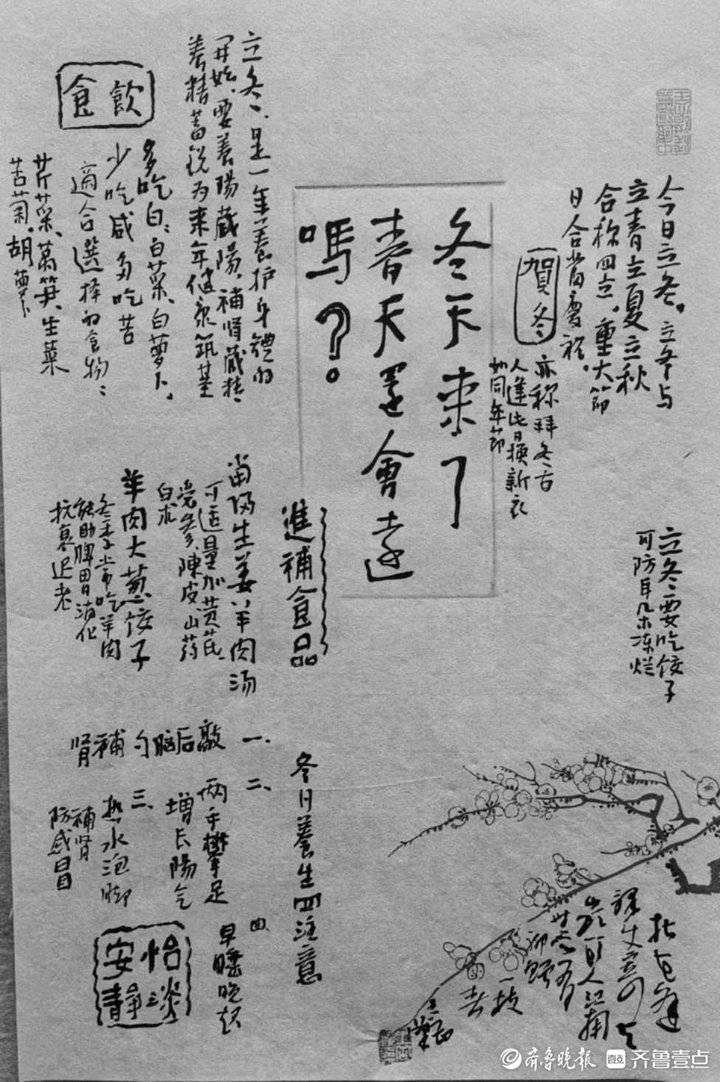 今日立冬。立冬与
立春立夏立秋
合称四立。重大节
日合当庆祝。
贺冬
亦称拜冬古
人逢此日换新衣
如同年节
冬天来了
春天还會远
嗎？
立冬、是一年养护身體的
开始、要养陽藏陽、補肾藏精、
养精蓄锐为来年健康筑基
飲食
多吃白：白菜、白萝卜、
少吃咸多吃苦
適合選择的食物：
芹菜、莴笋、生菜
苦菊、胡萝卜
立冬要吃饺子
可防耳朵冻烂
進補食品
當归生姜羊肉汤
可适量加黄芪、
党参、陳皮山药
白术
羊肉大葱饺子
冬季常吃羊肉
能助脾胃消化
抗衰迟老
冬日養生四注意
一、敲后脑勺補肾
二、两手攀足
增长陽气
三、热水泡脚
補肾
防感冒
四、早睡晚起
恬淡
安靜
一枝
春
齐鲁晚报 齐鲁壹点